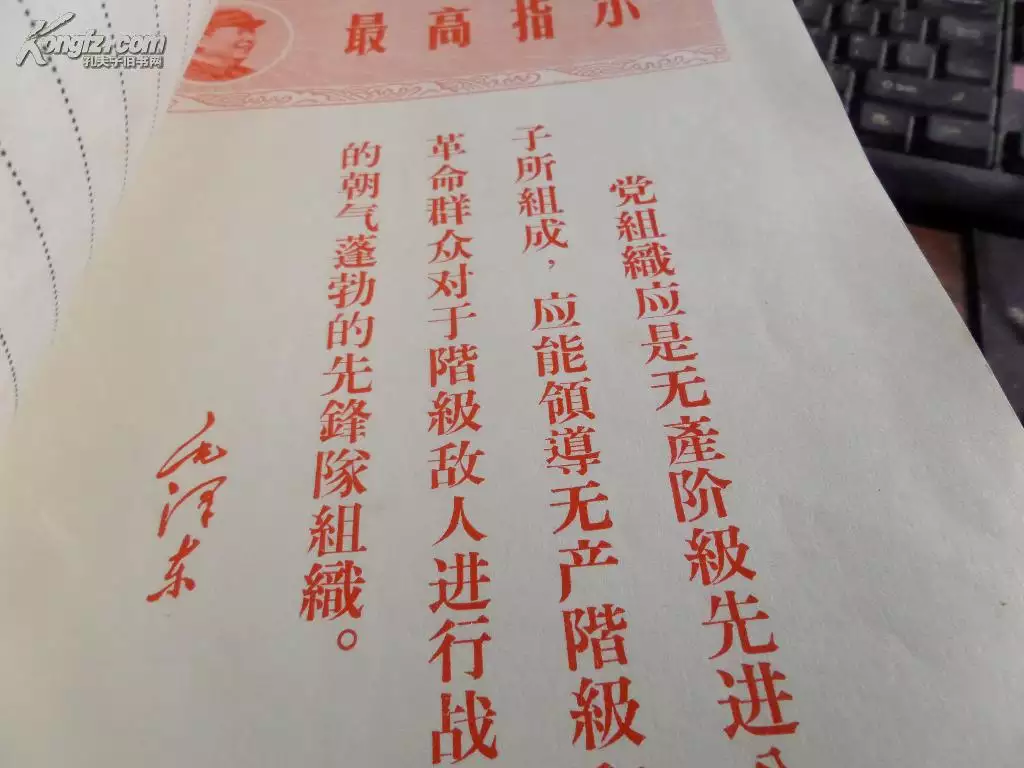 Kongfz.com
孔夫子旧书网
最高指示
党組織应是无產阶級先进分
子所組成，应能領導无产階級和
革命群众对于階級敌人进行战
的朝气蓬勃的先鋒隊組織。
毛泽东